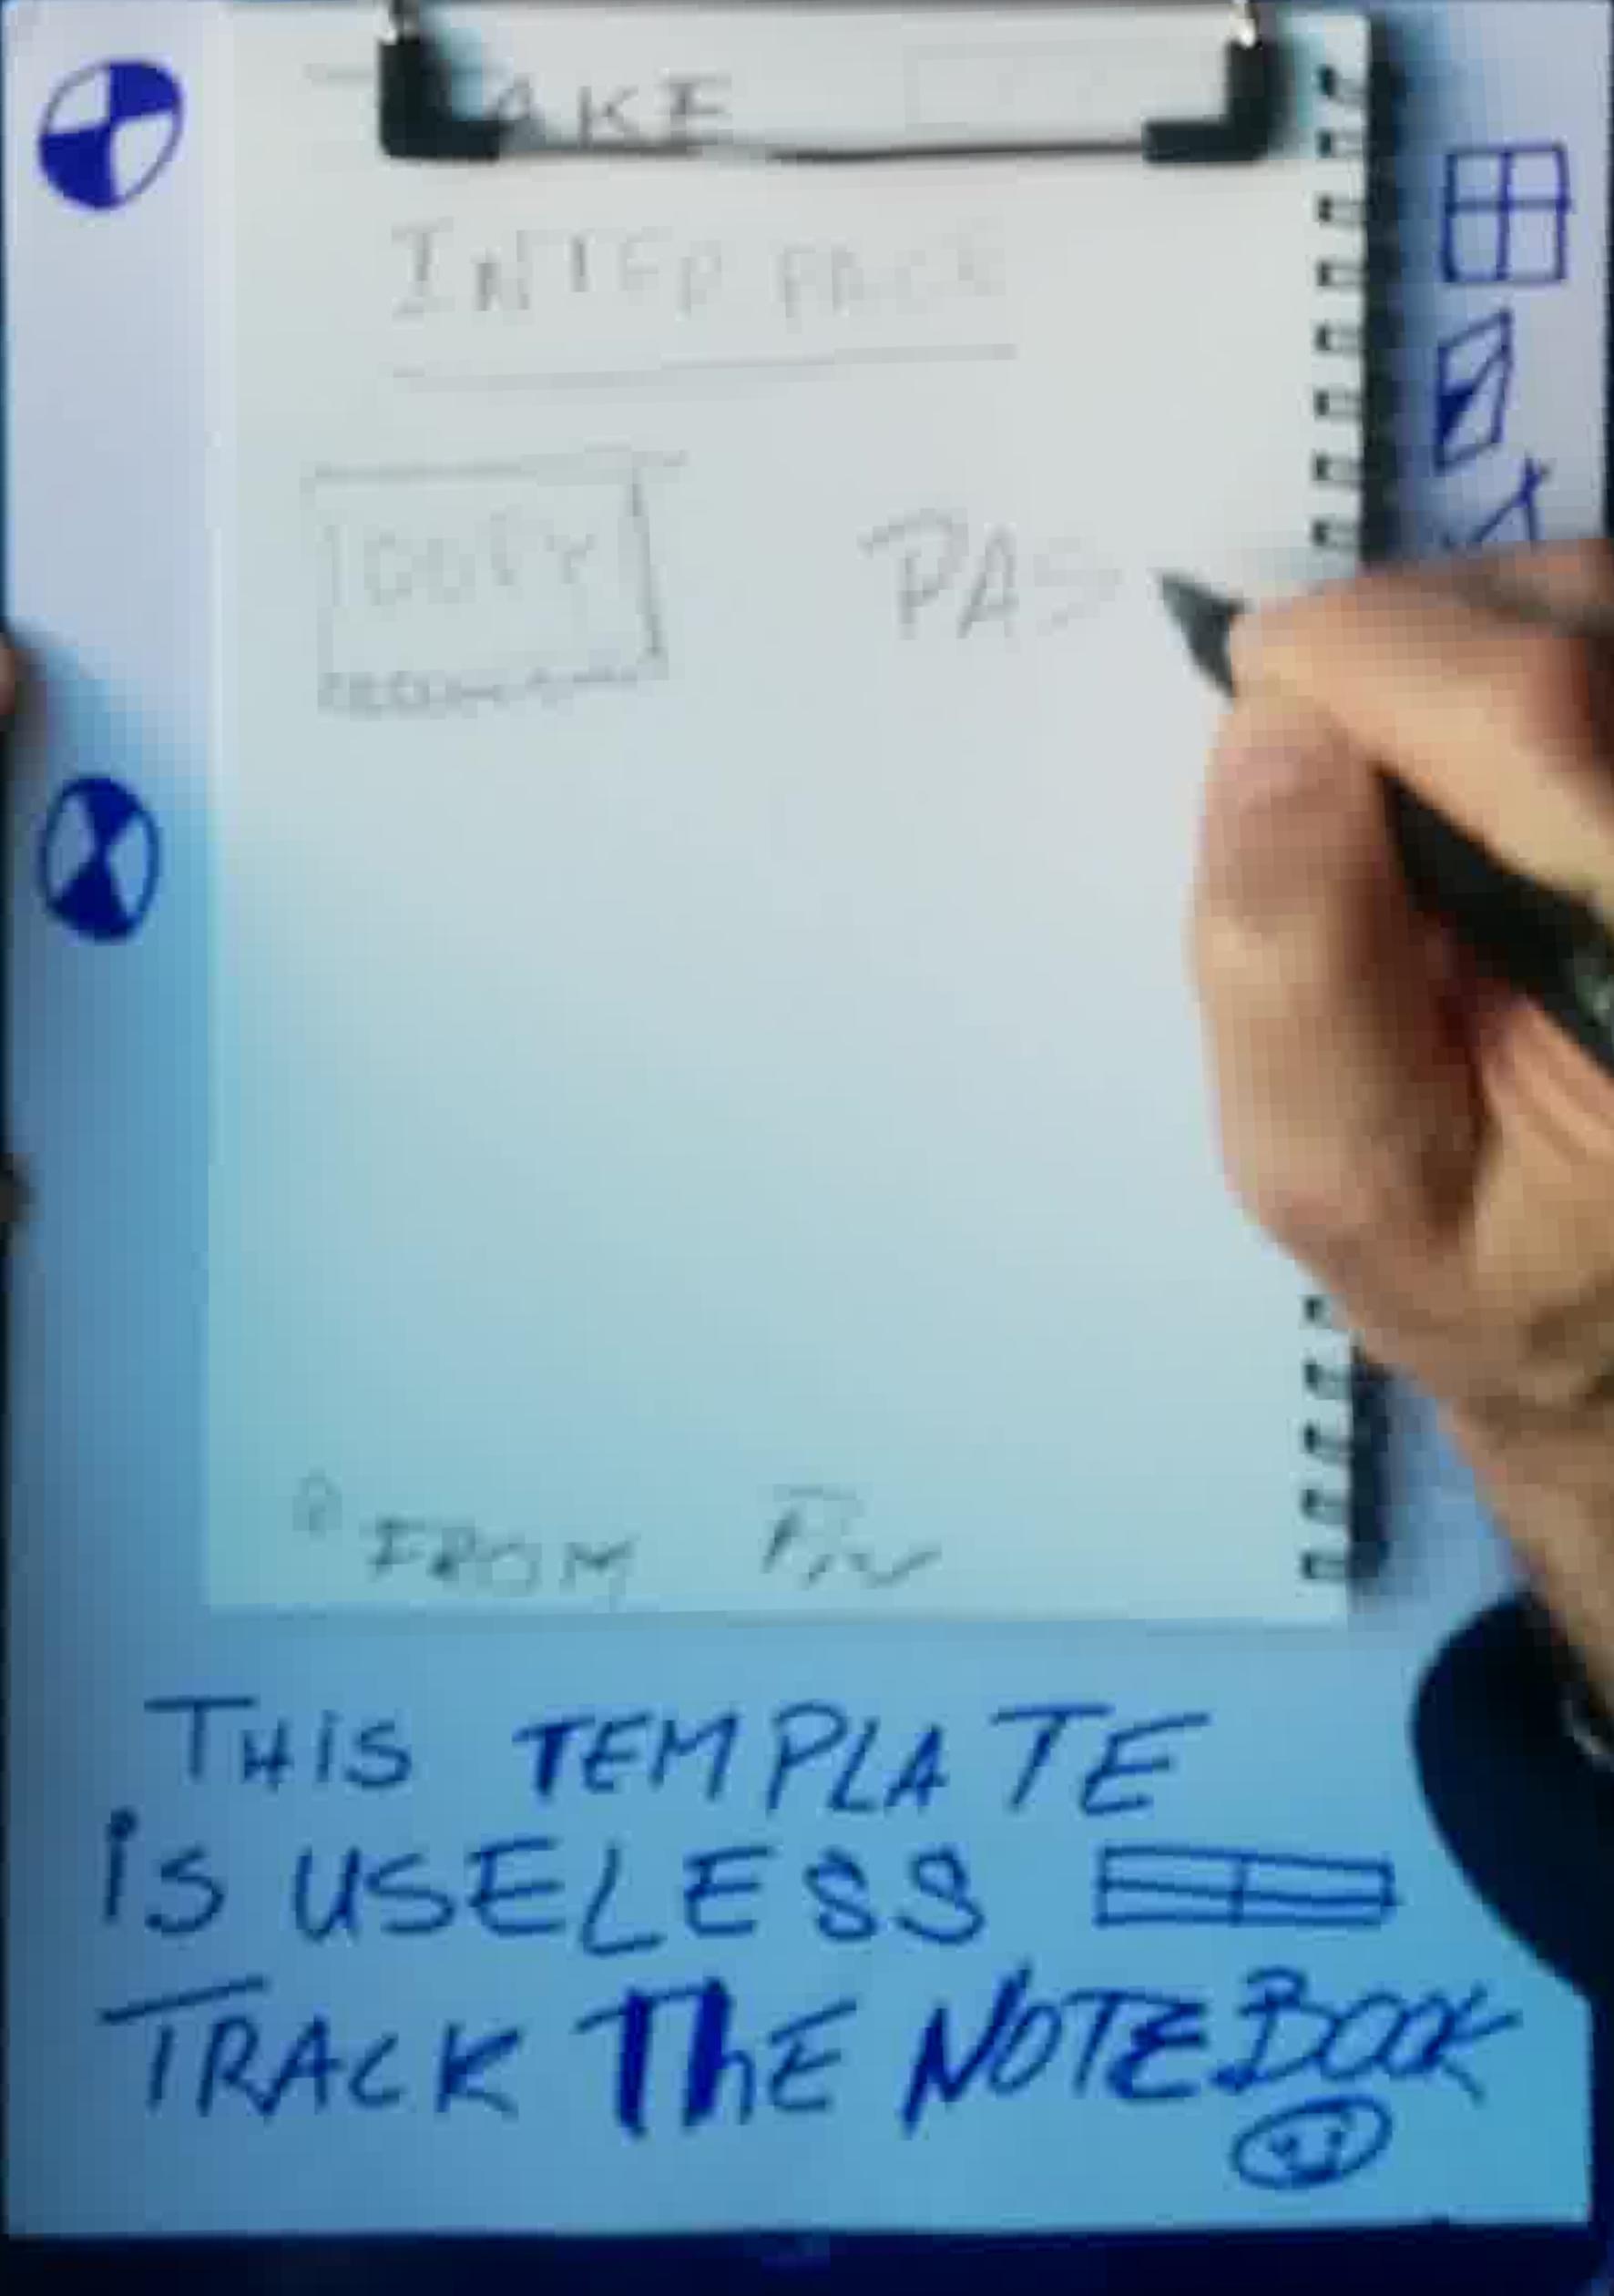 AKE
INTERFACE
COPY PAS
FROM
THIS TEMPLATE
is USELESS
TRACK ThE NOTEBOOK